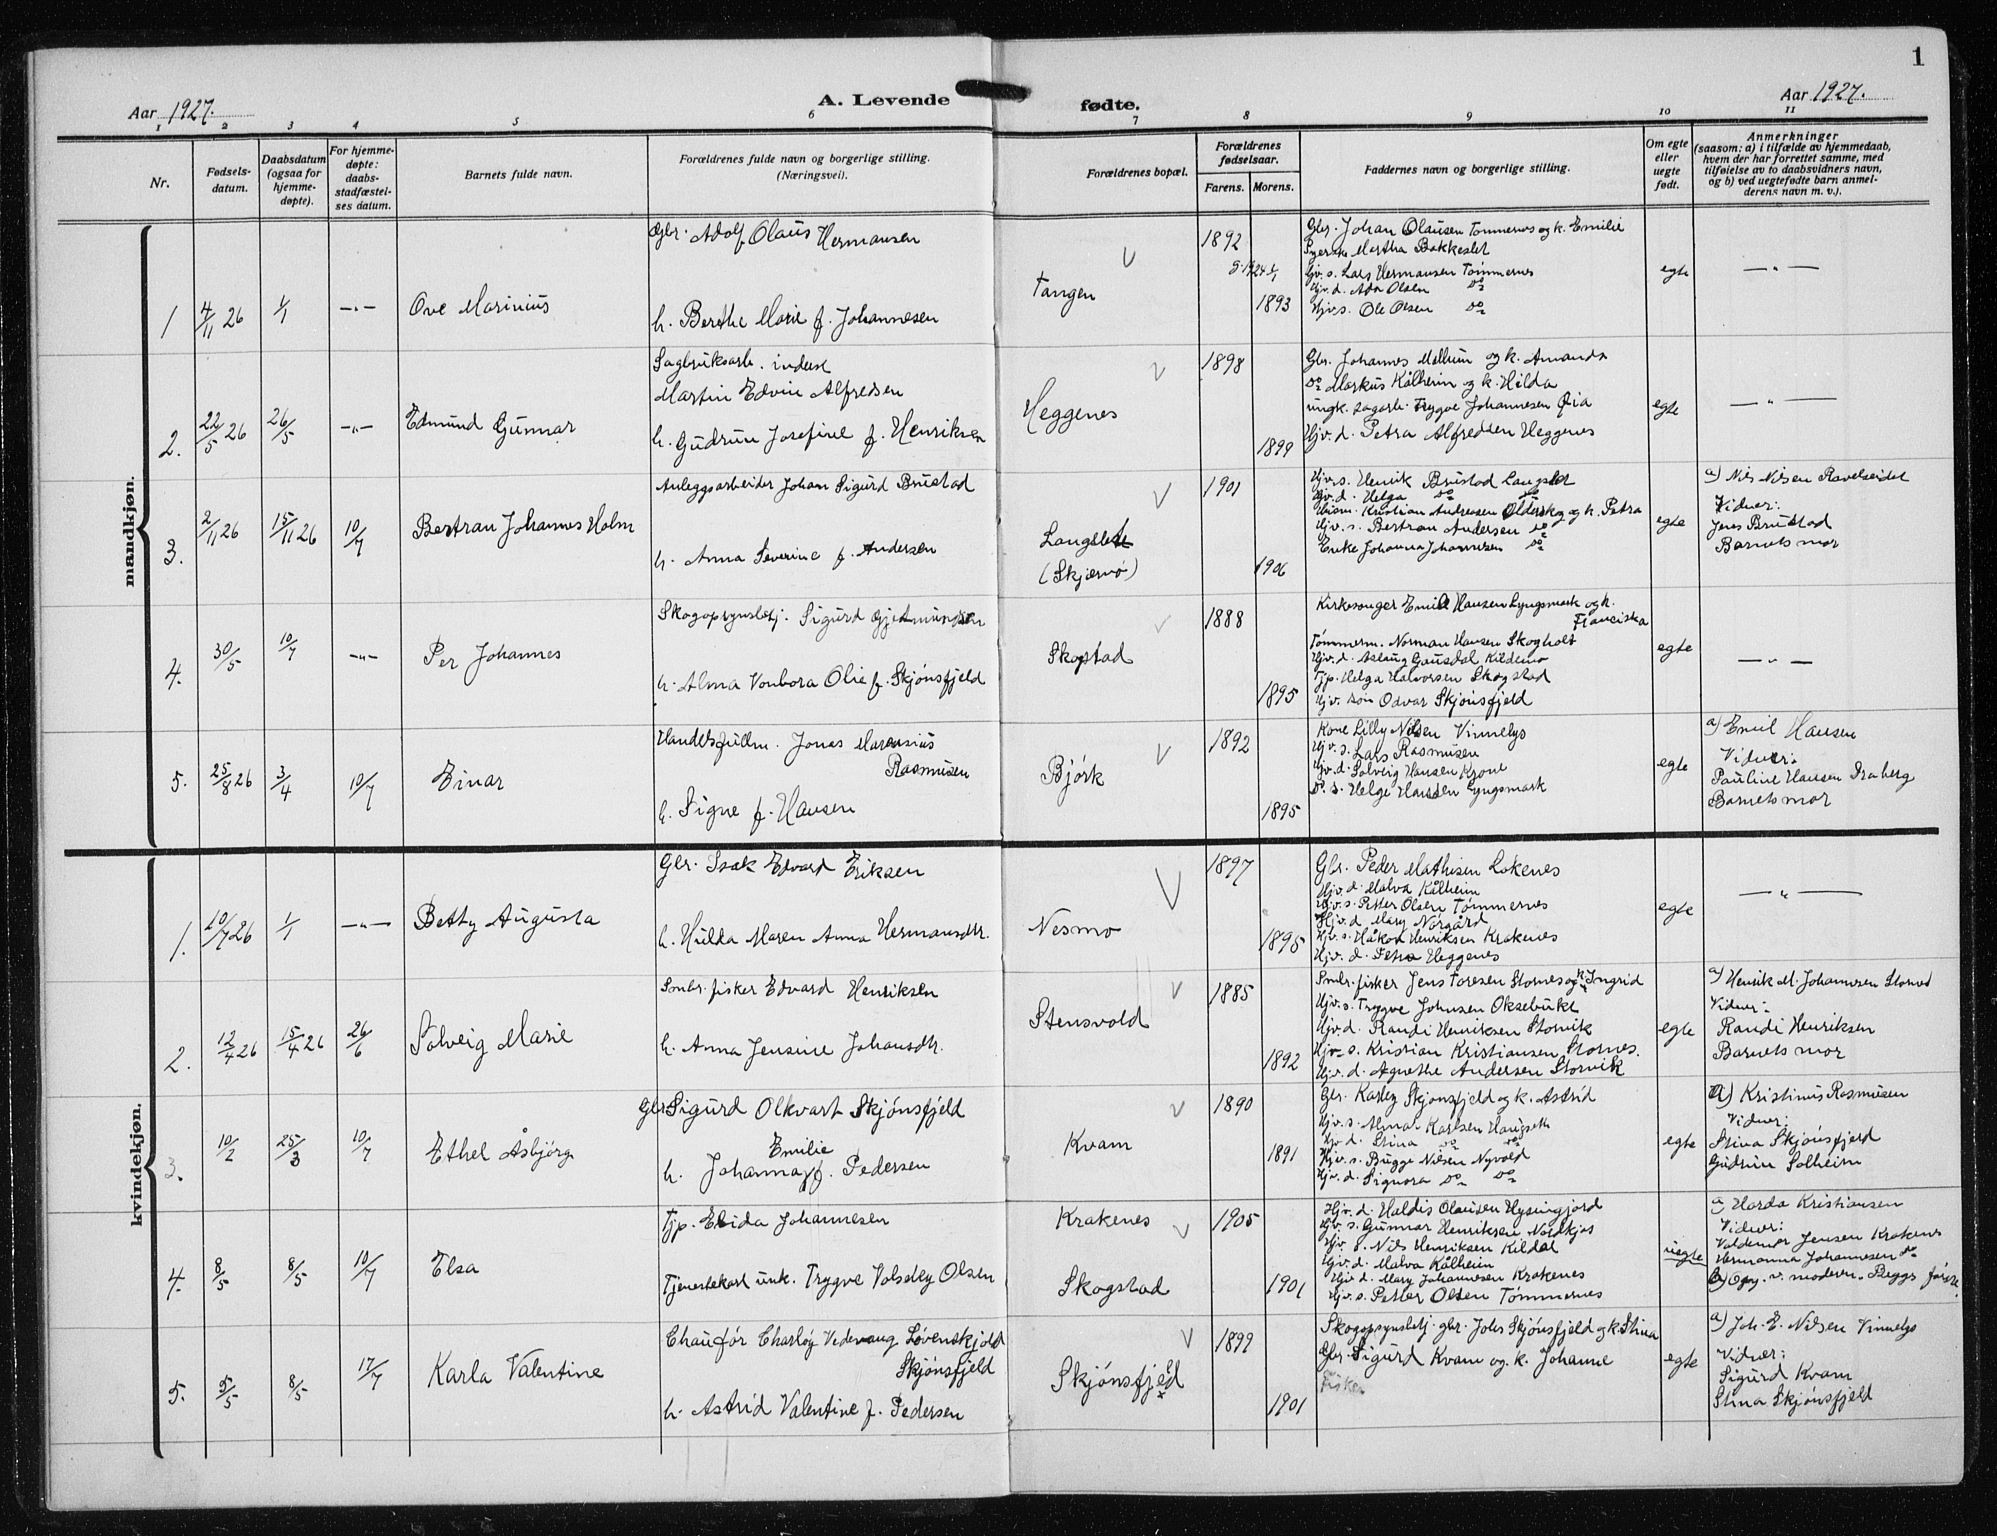 1
Aar 1927.
A. Levende fødte.
Aar 1927.
1 2 3 4 5 6 7 8 9 10 11
Nr.
Fødsels-
datum.
Daabsdatum
(ogsaa for
hjemme-
døpte).
For hjemme-
døpte:
daabs-
stadfæstel-
ses datum.
Barnets fulde navn.
Forældrenes fulde navn og borgerlige stilling.
(Næringsvei).
Forældrenes bopæl.
Forældrenes
fødselsaar.
Farens. Morens.
Faddernes navn og borgerlig stilling.
Om egte
eller
uegte
født.
Anmerkninger
(saasom: a) i tilfælde av hjemmedaab,
hvem der har forrettet samme, med
tilføielse av to daabsvidners navn,
og b) ved uegtefødte barn anmel-
derens navn m. v.).
mandkjøn.
1 4/11 26 1/1 —„— Ove Marinius
Gbr. Adolf Olaus Hermansen
h. Berthe Marie f. Johannesen
Tangen
1892
1893
Gbr. Johan Olausen Tømmernes og k. Emilie
Syerske Martha Bakkeslet
Gjv. s. Lars Hermansen Tømmernes
Hjv. d. Ada Olsen do
Hjv. s. Ole Olsen do
egte
—„—
2. 22/5 26 26/5 —„— Edmund Gunnar
Sagbruksarb. inderst
Martin Edvin Alfredsen
h. Gudrun Josefine f. Henriksen
Heggenes
1898
1899
Gbr. Johannes Mellrum og k. Amanda
do Markus Kålheim og k. Hilda
ungk. sagarb. Trygve Johannesen Øia
Hjv. d. Petra Alfredsen Heggenes
egte
—„—
3. 2/11 26 15/11 26 10/7 Bertran Johannes Holm
Anleggsarbeider Johan Sigurd Brustad
h. Anna Severine f. Andersen
Langslett
(Skjervø)
1901
1906
Hjv. s. Henrik Brustad Langslet
Hjv. d. Helga do do
Kristian Andreasen Olderskog og k. Petra
Hjv. s. Bertran Andersen do
Enke Johanna Johannesen do
egte
a) Nils Nilsen Ravelseidet
Vidner:
Jens Brustad
Barnets mor
4. 30/5 10/7 —„— Per Johannes
Skogopsynsbetj. Sigurd Gjetmundsen
h. Alma Vonbora Olie f. Skjønsfjeld
Skogstad
1888
1895
Kirkesanger Emil Hansen Lyngsmark og k.
Franciska
Tømmerm. Norman Hansen Skogholt
Hjv. d. Aslaug Gausdal Kildemo
Tjp. Helga Halvorsen Skogstad
Hjv. søn Odvar Skjønsfjeld
egte
—„—
5. 25/8 26 3/4 10/7 Einar
Handelsfullm. Jonas Marensius
Rasmusen
h. Signe f. Hansen
Bjørk
1892
1895
Kone Lilly Nilsen Vinnelys
Hjv. s. Lars Rasmusen
Hjv. d. Solveig Hansen Krone
do. s. Helge Hansen Lyngsmark
egte
a) Emil Hansen
Vidner:
Pauline Hansen Draberg
Barnets mor
kvindekjøn.
1. 10/7 26 1/1 —„— Betty Augusta
Gbr. Isak Edvard Eriksen
h. Hulda Maren Anna Hermansdtr.
Nesmo
1897
1895
Gbr. Peder Mathisen Lokenes
Hjv. d. Malva Kålheim
Hjv. s. Petter Olsen Tømmernes
Hjv. d. Mary Norgård
Hjv. s. Håkon Henriksen Krakenes
Hjv. d. Petra Heggenes
egte
—„—
2. 12/4 26 15/4 26 26/6 Solveig Marie
Smbr. fisker Edvard Henriksen
h. Anna Jensine Johansdtr.
Stensvold
1885
1892
Smbr. fisker Jens Toresen Stornes og k. Ingrid
Hjv. s. Trygve Johnsen Oksebukt
Hjv. d. Randi Henriksen Storvik
Hjv. s. Kristian Kristiansen Stornes.
Hjv. d. Agnethe Andersen Storvik
egte
a) Henrik M. Johannesen Stornes
Vidner:
Randi Henriksen
Barnets mor
3. 10/2 25/3 10/7 Ethel Åsbjørg
Gbr. Sigurd Olkvart Skjønsfjeld
Emilie
h. Johanna f. Pedersen
Kvam
1890
1891
Gbr. Karley Skjønsfjeld og k. Astrid
Hjv. s. Almar Karlsen Haugseth
Hjv. d. Stina do do
Hjv. s. Bugge Nilsen Nyvold
Hjv. d. Signora do do
egte
a) Kristinus Rasmusen
Vidner:
Stina Skjønsfjeld
Gudrun Solheim
4. 8/5 8/5 10/7 Elsa
Tjp. Elida Johannesen
Tjenestekarl unk. Trygve Valseby Olsen
Krakenes
Skogstad
1905
1901
Hjv. d. Haldis Olausen Hysingjord
Hjv. s. Gunnar Henriksen Nordkjos
Hjv. s. Nils Henriksen Kildal
Hjv. d. Malva Kålheim
Hjv. d. Mary Johannesen Krakenes
Hjv. s. Petter Olsen Tømmernes
uegte
a) Harda Kristiansen
Vidner:
Valdemar Jensen Krakenes
Hermanna Johannesen do
b) Opg. v. moderen. Begges første.
5. 5/5 8/5 17/7 Karla Valentine
Chauffør Charløy Vedevaug Løvenskjold
Skjønsfjeld
h. Astrid Valentine f. Pedersen
Skjønsfjeld
1899
1901
Skogopsynsbetj. gbr. Johs Skjønsfjeld og k. Stina
Gbr. Sigurd Kvam og k. Johanne
Fisker
egte
a) Joh. E. Nilsen Vinnelys
Vidner:
Sigurd Kvam
Stina Skjønsfjeld